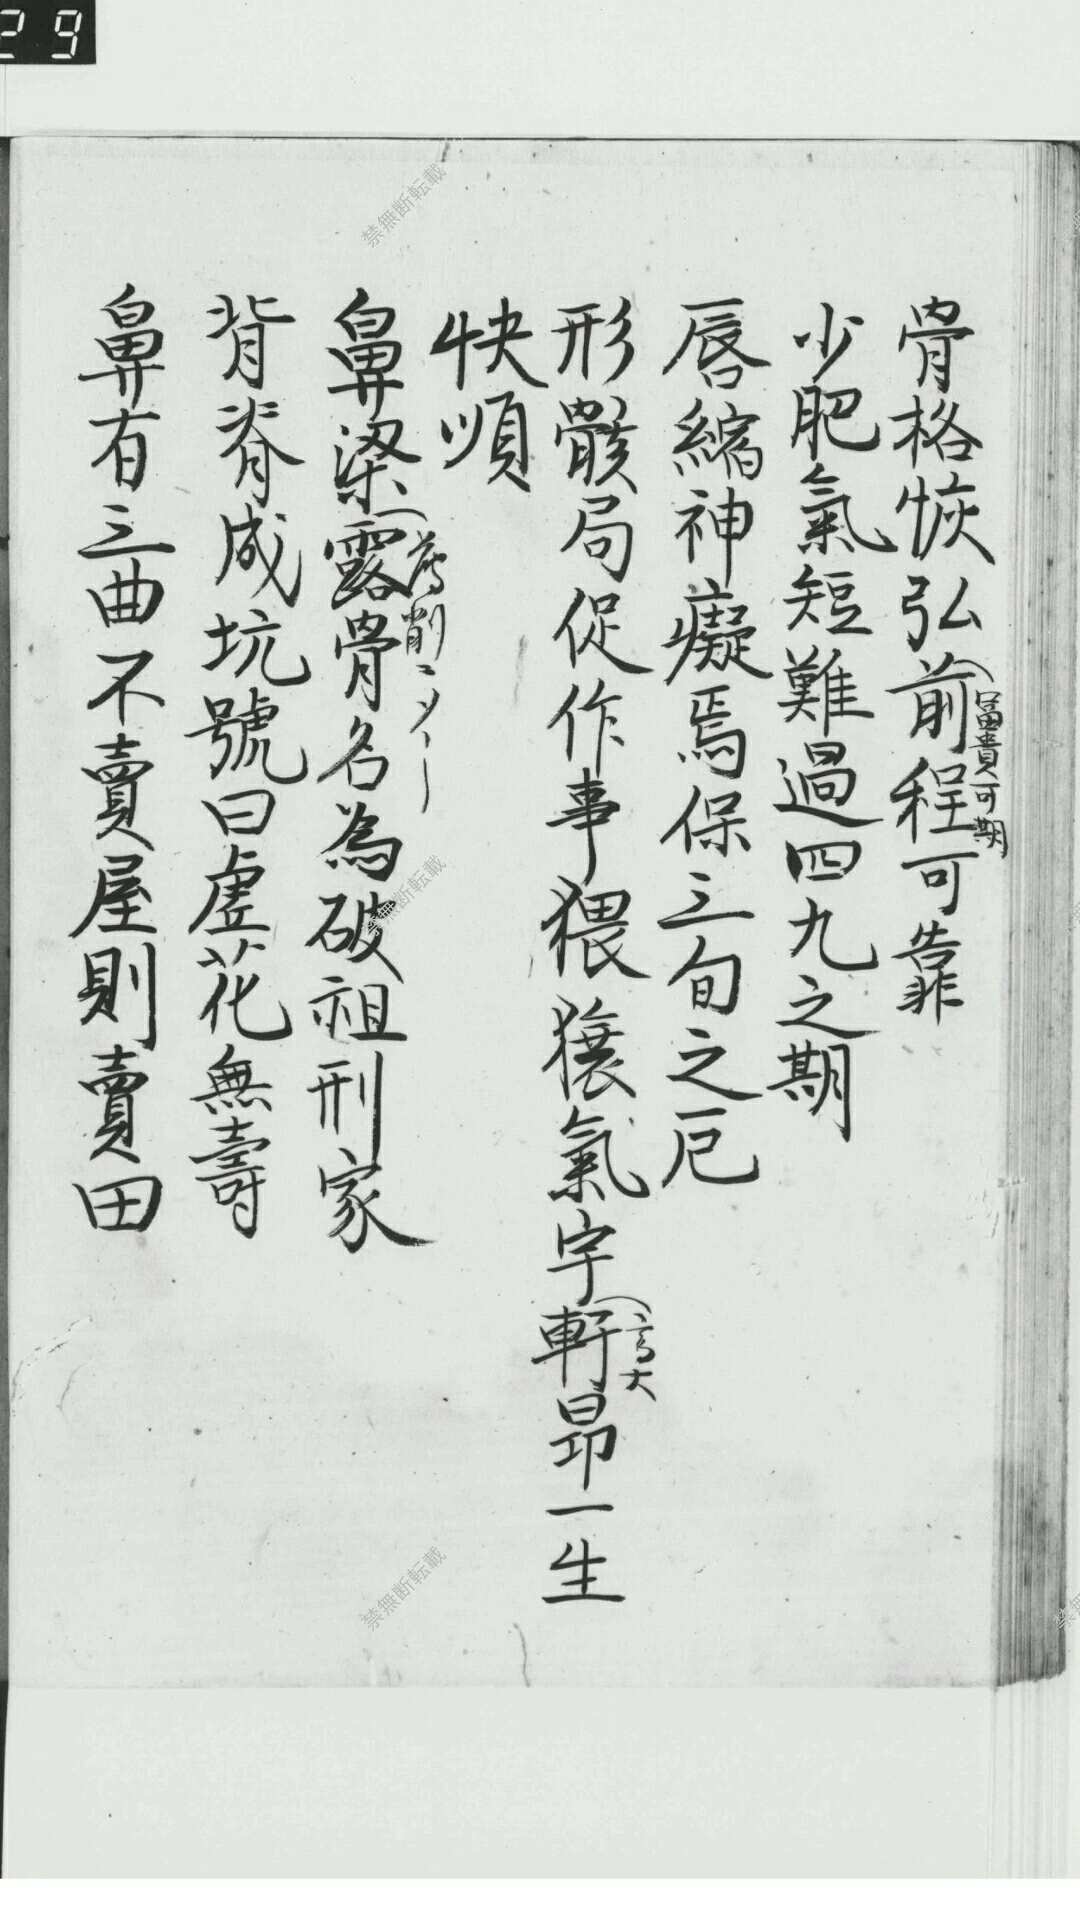 29
骨格恢弘前程可靠
富貴可期
少肥氣短難過四九之期
唇縮神癡焉保三旬之厄
形骸局促作事猥獕氣宇軒昂一生
高大
快順
鼻梁露骨名為破祖刑家
背脊成坑號曰虛花無壽
鼻有三曲不賣屋則賣田
禁無断転載
禁無断転載
禁無断転載